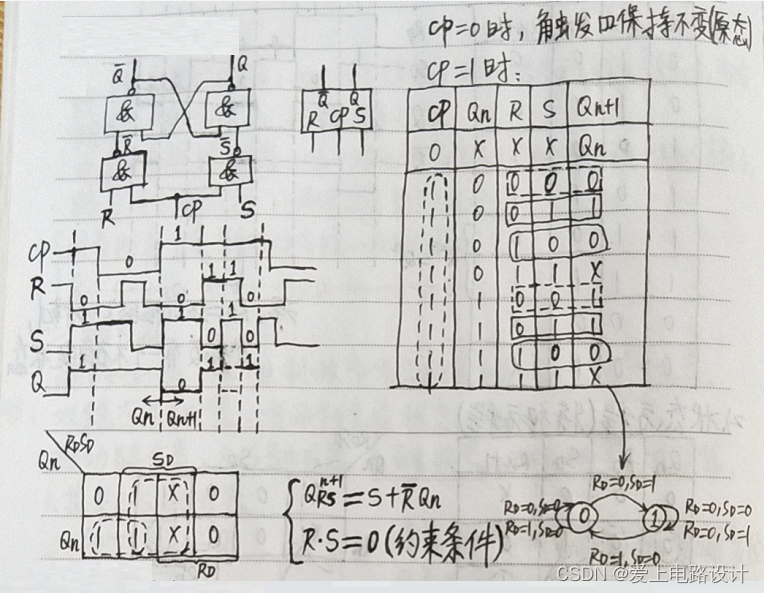 CP=0时,触发口保持不变(原态)
CP=1时:
Q̄ Q
& &
R̄ S̄
& &
R CP S
Q̄ Q
R CP S
CP Qn R S Qn+1
0 X X X Qn
1 0 0 0 0
1 0 0 1 1
1 0 1 0 0
1 0 1 1 X
1 1 0 0 1
1 1 0 1 1
1 1 1 0 0
1 1 1 1 X
CP 1 0 1
R 0 0 1 1 0
S 1 1 0 1 0
Q 1 0 1 1
Qn Qn+1
RDSD
Qn SD
0 1 X 0
Qn 1 1 X 0
RD
QRSⁿ⁺¹=S+R̄Qn
R·S=0(约束条件)
RD=0,SD=1
RD=0,SD=0
RD=1,SD=0
0 1
RD=0,SD=0
RD=0,SD=1
RD=1,SD=0
CSDN @爱上电路设计